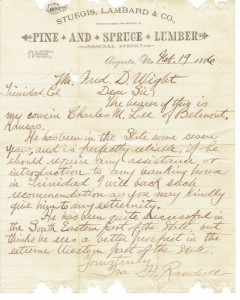 STURGIS, LAMBARD & CO.
PINE AND SPRUCE LUMBER
ARSENAL STREET
Augusta, Me. Feb. 19 1886
Mr. Fred D. Wight
Trinidad Col. Dear Sir:
The bearer of this is
my cousin Charles M. Lee of Belmont,
Kansas.
He has been in the State some seven
years, and is perfectly reliable, if he
should require any assistance, or
introduction to any banking house
in Trinidad I will back such
recommendation as you may kindly
give him to any extremity.
He has been quite successful in
the South Eastern part of the State, but
thinks he sees a better prospect in the
extreme Western part of the State.
Yours truly,